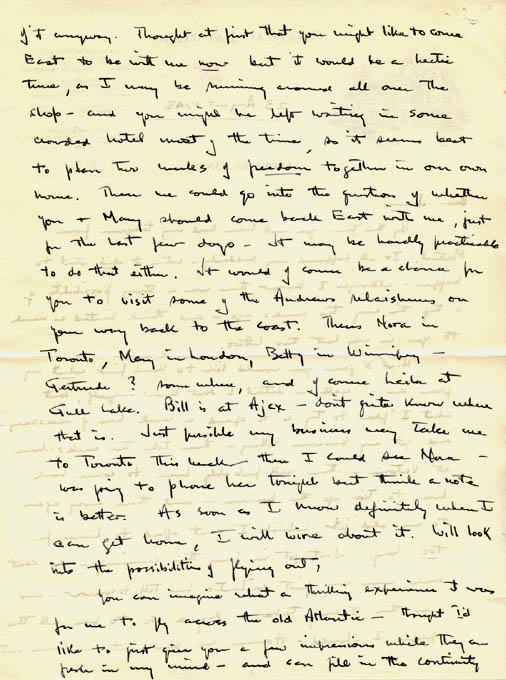 of it anyway. Thought at first that you might like to come
East to be with me now but it would be a hectic
time, as I may be running around all over the
shop - and you might be left waiting in some
crowded hotel most of the time, so it seems best
to plan two weeks of freedom together in our own
home. Then we could go into the question of whether
you + Mary should come back East with me, just
for the last few days - It may be hardly practicable
to do that either. It would of course be a chance for
you to visit some of the Andrews relationships on
your way back to the coast. Theres Nora in
Toronto, May in London, Betty in Winnipeg -
Gertrude ? somewhere, and of course Leila at
Gull Lake. Bill is at Ajax - don't quite know where
that is. Just possible my business may take me
to Toronto this week - then I could see Nora -
was going to phone her tonight but think a note
is better. As soon as I know definitely when I
can get home, I will wire about it. Will look
into the possibilities of flying out,
You can imagine what a thrilling experience it was
for me to fly across the old Atlantic - thought I'd
like to just give you a few impressions while they are
fresh in my mind - and can fill in the continuity